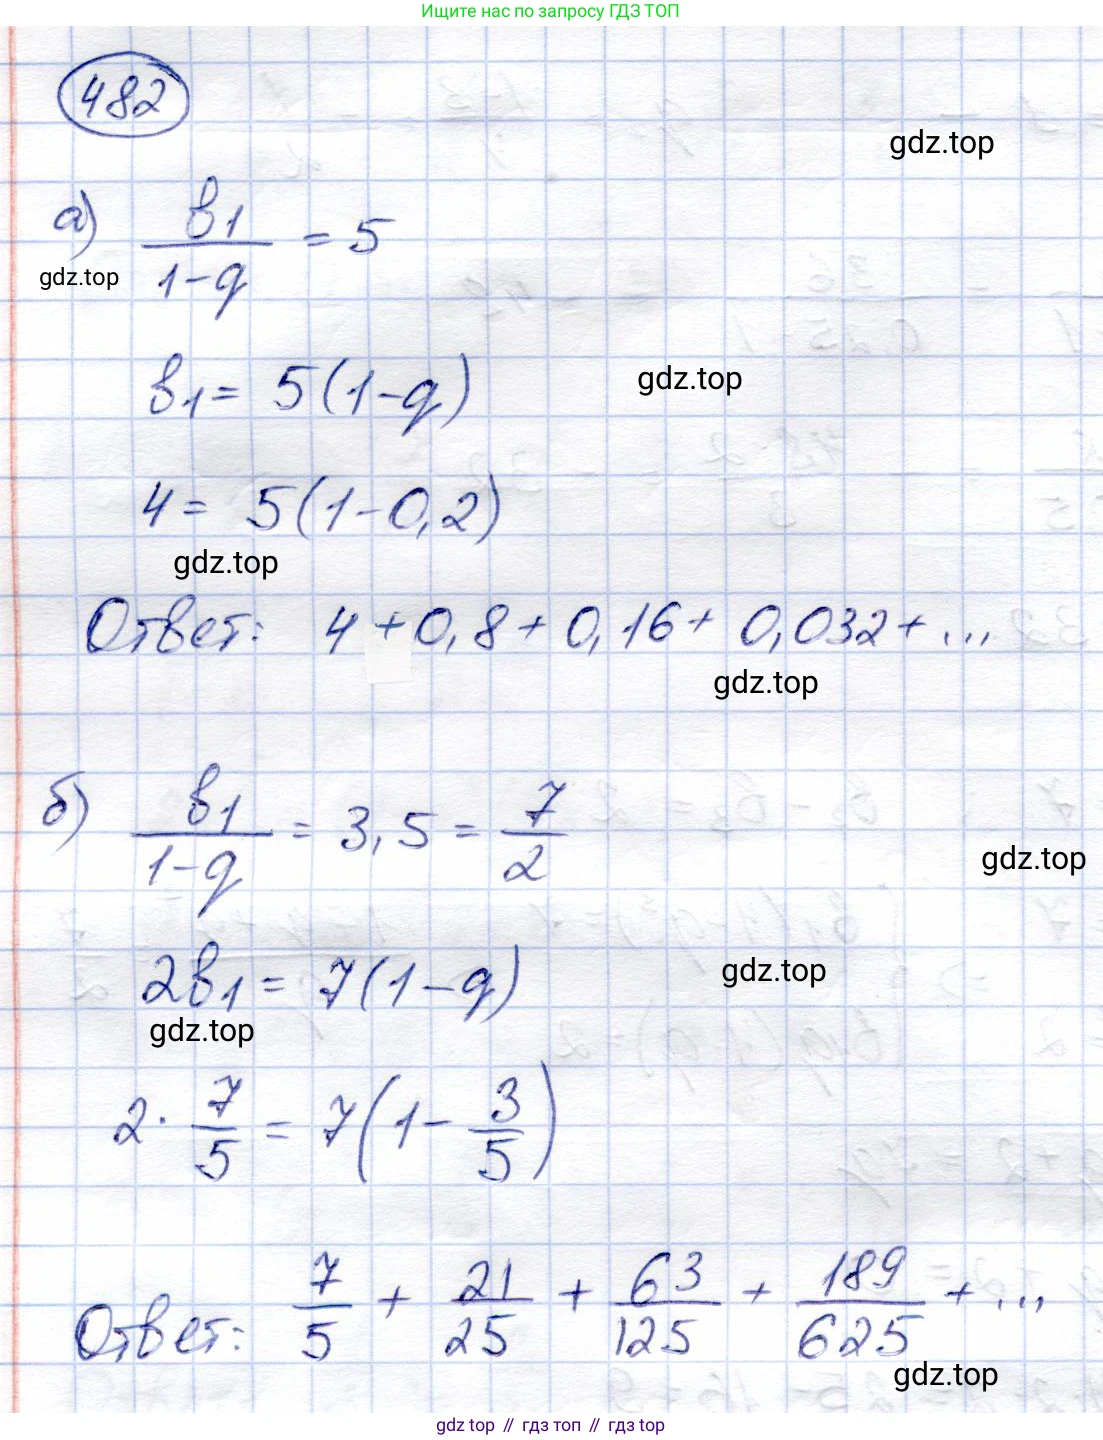 Ищите нас по запросу ГДЗ ТОП
482
gdz.top
а) в₁/(1-q) = 5
gdz.top
в₁ = 5(1-q)
gdz.top
4 = 5(1-0,2)
gdz.top
Ответ: 4 + 0,8 + 0,16 + 0,032 + ...
gdz.top
б) в₁/(1-q) = 3,5 = 7/2
gdz.top
2в₁ = 7(1-q)
gdz.top
gdz.top
2 · 7/5 = 7(1 - 3/5)
Ответ: 7/5 + 21/25 + 63/125 + 189/625 + ...
gdz.top
gdz top // гдз топ // гдз top